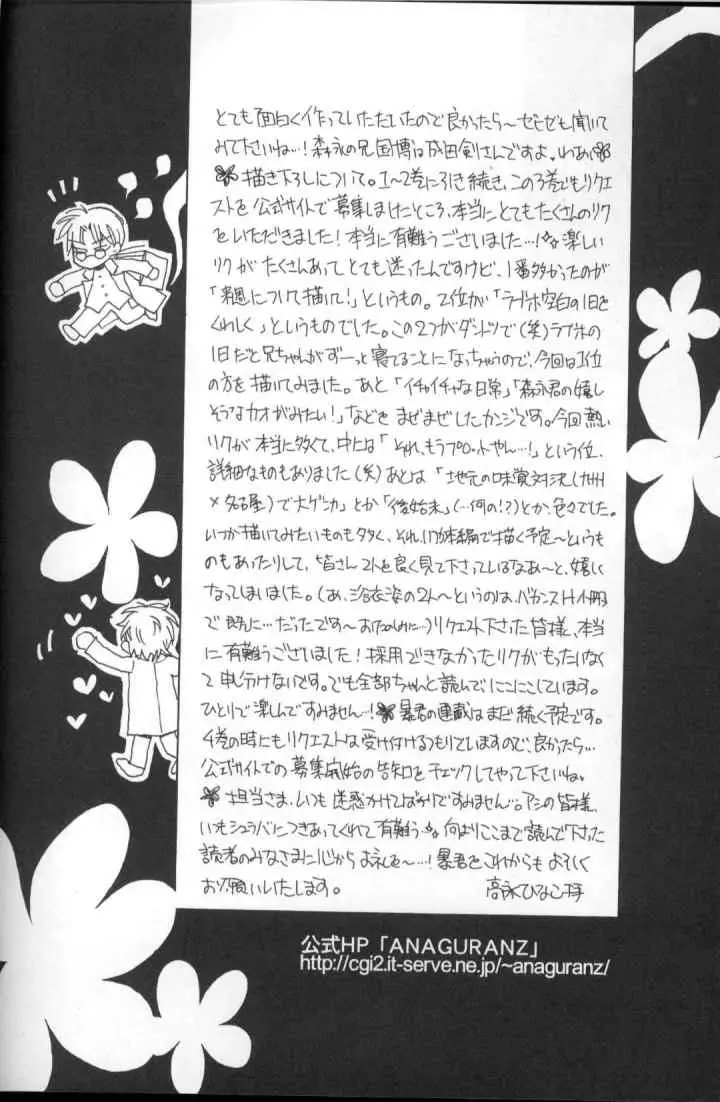 とても面白く作っていただいたので良かったら〜ゼヒゼヒ聞いて
みて下さいね…!森永の兄国博は成田剣さんですよ。わあい
描き下ろしについて。1〜2巻に引き続き、この3巻でもリクエ
ストを公式サイトで募集しましたところ、本当にとてもたくさんのリク
をいただきました!本当に有難うございました…!楽しい
リクがたくさんあってとても迷ったんですけど、1番多かったのが
「来週について描いて!」というもの。2位が「ラブホ空白の1日を
くわしく」というものでした。この2つがダントツで(笑)ラブホの
1日だと兄ちゃんがずーっと寝てることになっちゃうので、今回は1位
の方を描いてみました。あと「イチャイチャな日常」「森永君の嬉し
そうなカオがみたい!」などをまぜまぜしたカンジです。今回熱い
リクが本当に多くて、中には「それ、もうプロットやん…!」という位、
詳細なものもありました(笑)あとは「地元の味覚対決(九州
×名古屋)で大ゲンカ」とか「後始末」(…何の!?)とか、色々でした。
いつか描いてみたいものも多く、それ、いつか本編で描く予定〜というも
のもあったりして、皆さん2人を良く見て下さっているなあ〜と、嬉しく
なってしまいました。(あ、浴衣姿の2人〜というのは、バカンスH小冊子
で既に…だったです〜おたのしみに…)リクエスト下さった皆様、本当
に有難うございました!採用できなかったリクがもったいなく
て申し分けないです。でも全部ちゃんと読んで、にこにこしています。
ひとりで楽しんですみません…!暴君の連載はまだ続く予定です。
4巻の時にもリクエストは受け付けるつもりでいますので、良かったら…
公式サイトでの募集開始の告知をチェックしてやって下さいね。
担当さま、いつも迷惑かけてばかりですみません…。アシの皆様、
いつもシュラバにつきあってくれて有難う…何よりここまで読んで下さった
読者のみなさまに心からお礼を〜…!暴君をこれからもよろしく
お願いいたします。 高永ひなこ拝
公式HP「ANAGURANZ」
http://cgi2.it-serve.ne.jp/~anaguranz/